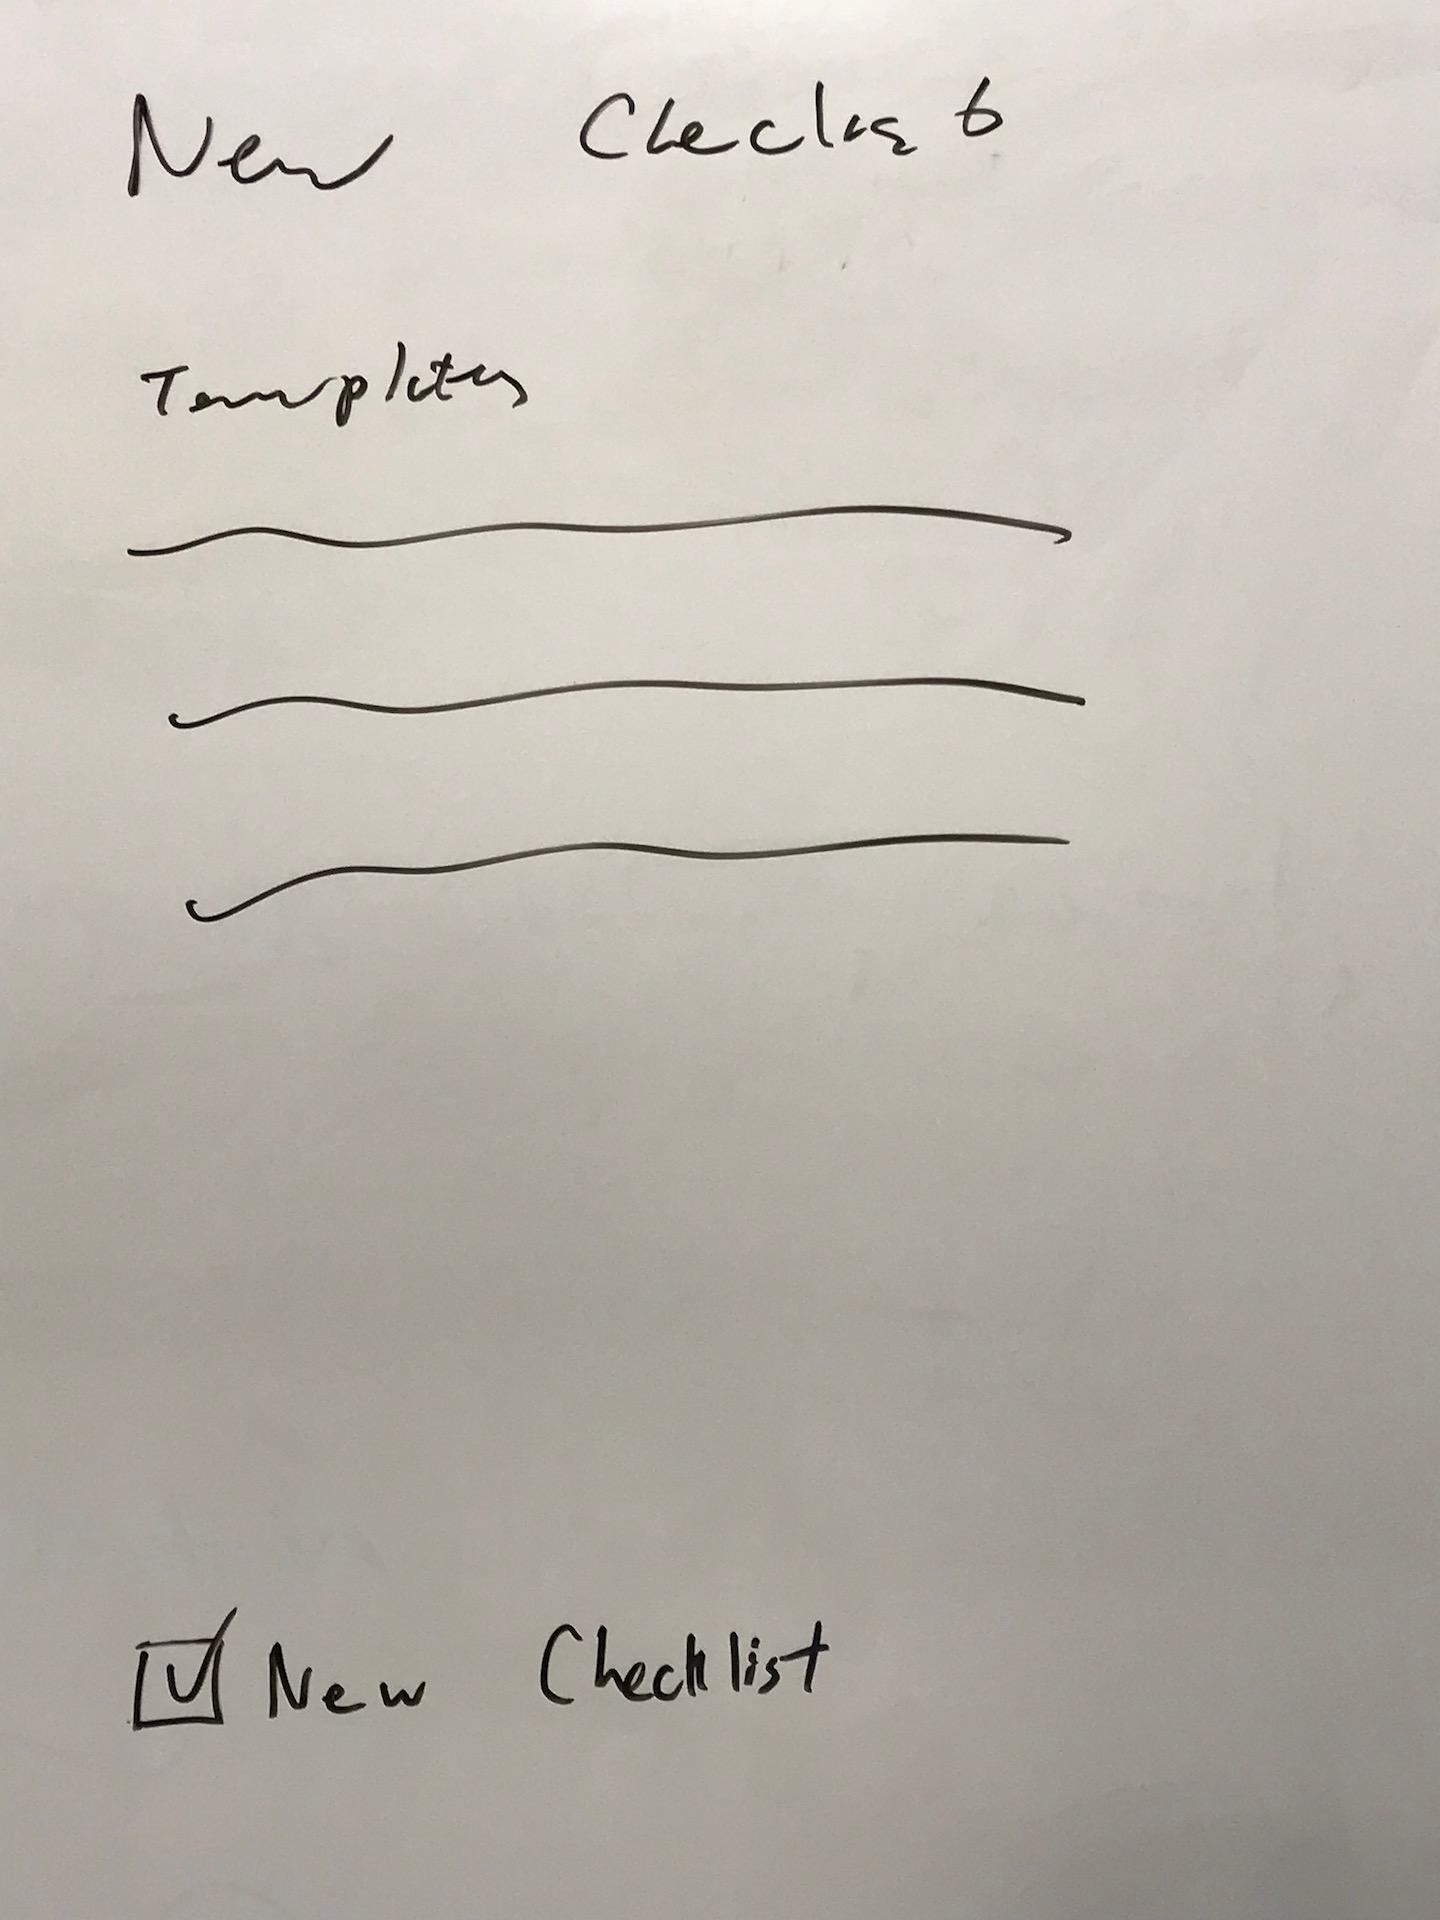 New Checklist
Templates
New Checklist